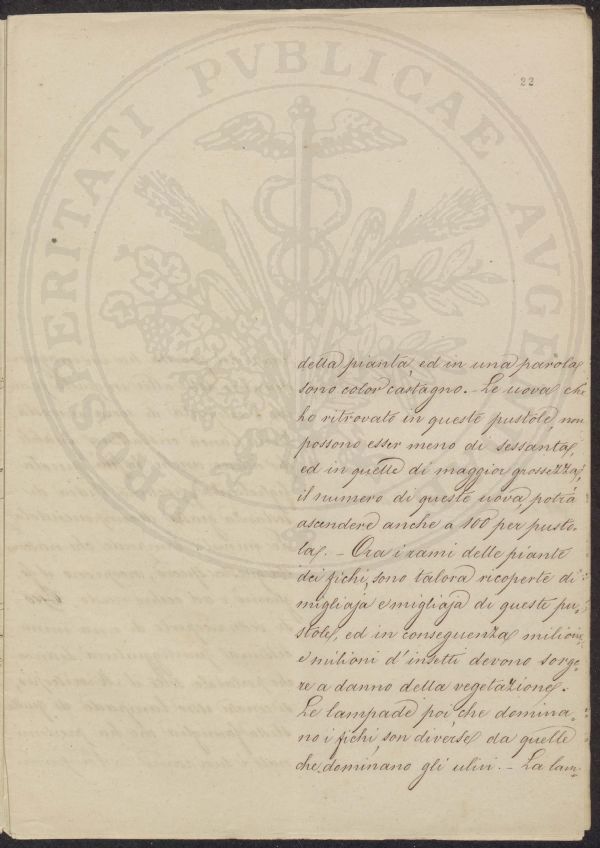 PROSPERITATI PVBLICAE AVGE
22
della pianta, ed in una parola
sono color castagno. - Le uova che
ho ritrovato in queste pustole, non
possono esser meno di sessanta,
ed in quelle di maggior grossezza,
il numero di queste uova, potrà
ascendere anche a 100 per pusto-
la. - Ora i rami delle piante
dei fichi, sono talora ricoperte di
migliaja e migliaja di queste pu-
stole, ed in conseguenza milioni
e milioni d'insetti devono sorge-
re a danno della vegetazione.
Le lampade poi, che domina-
no i fichi, son diverse da quelle
che dominano gli ulivi. - La lam-